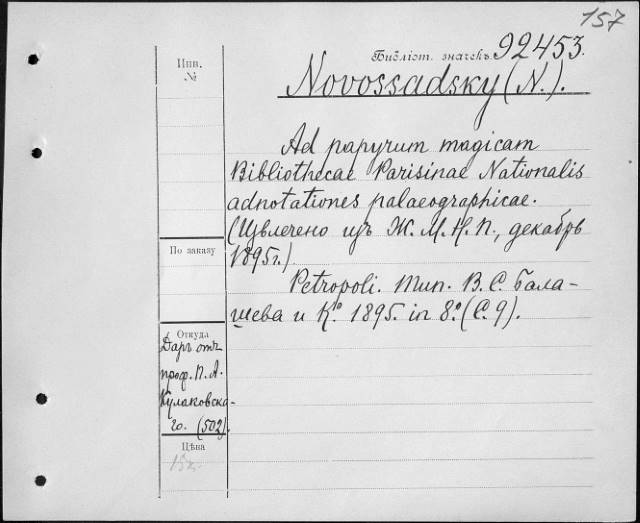 157
Инв.
№
Библіот. значекъ 92453.
Novossadsky (N.).
Ad papyrum magicam
Bibliothecae Parisinae Nationalis
adnotationes palaeographicae.
(Извлечено изъ Ж. М. Н. П., декабрь
1895 г.)
Petropoli. Тип. В. С. Бала-
шева и Ко. 1895. in 8º. (С. 9).
По заказу
Откуда
Даръ отъ
проф. П. А.
Кулаковска-
го. (502).
Цѣна
15к.